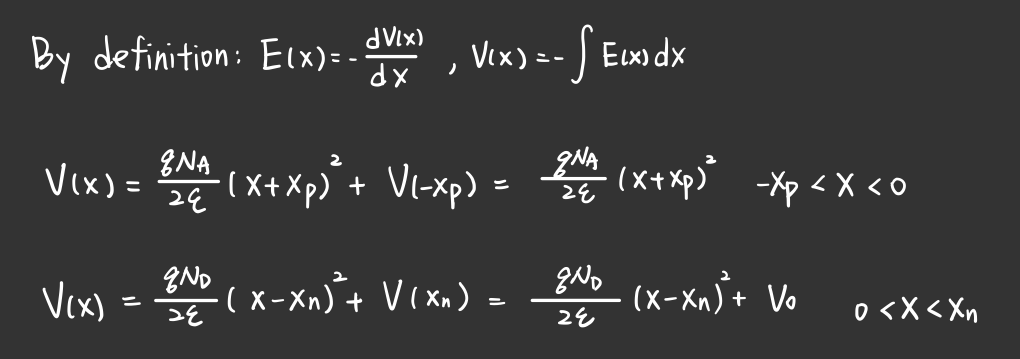 By definition: E(x)=-dV(x)/dx , V(x)=-∫E(x)dx
V(x) = qN_A/2ε (x+x_p)² + V(-x_p) = qN_A/2ε (x+x_p)² -x_p < x < 0
V(x) = qN_D/2ε (x-x_n)² + V(x_n) = qN_D/2ε (x-x_n)² + V_0 0 < x < x_n